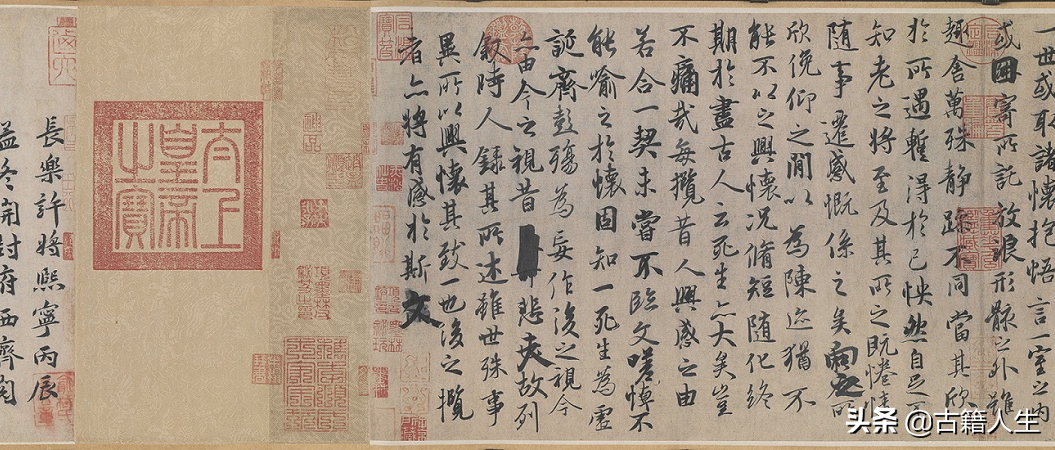 一世或取諸懷抱悟言一室之内
或因寄所託放浪形骸之外雖
趣舍萬殊静躁不同當其欣
於所遇暫得於己怏然自足不
知老之將至及其所之既惓情
随事遷感慨係之矣向之所
欣俛仰之間以為陳迹猶不
能不以之興懷況脩短隨化終
期於盡古人云死生亦大矣豈
不痛哉每攬昔人興感之由
若合一契未嘗不臨文嗟悼不
能喻之於懷固知一死生為虛
誕齊彭殤為妄作後之視今
亦由今之視昔悲夫故列
叙時人錄其所述雖世殊事
異所以興懷其致一也後之攬
者亦將有感於斯文
太上
皇帝
之寶
長樂許將熙寧丙辰
孟冬開封府西齊閱
头条 @古籍人生